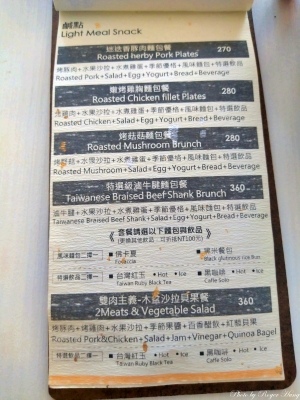 鹹點
Light Meal Snack
麵包餐 270
Roasted herby Pork Plates
烤豚肉+水果沙拉+水煮雞蛋+季節優格+風味麵包+特選飲品
Roasted Pork+Salad+Egg+Yogurt+Bread+Beverage
嫩烤雞胸麵包餐 280
Roasted Chicken fillet Plates
烤雞肉+水果沙拉+水煮雞蛋+季節優格+風味麵包+特選飲品
Roasted Chicken+Salad+Egg+Yogurt+Bread+Beverage
烤菇菇麵包餐 280
Roasted Mushroom Brunch
烤菇菇+水果沙拉+水煮雞蛋+季節優格+風味麵包+特選飲品
Roasted Mushroom+Salad+Egg+Yogurt+Bread+Beverage
特選級滷牛腱麵包餐 360
Taiwanese Braised Beef Shank Brunch
滷牛腱+水果沙拉+水煮雞蛋+季節優格+風味麵包+特選飲品
Taiwanese Braised Beef Shank+Salad+Egg+Yogurt+Bread+Beverage
《含餐請選以下麵包與飲品》
(更換其他飲品,可折抵NT100元)
風味麵包二擇一 ■佛卡夏 ■黑米餐包
Focaccia Black glutinous rice Bun
特選飲品二擇一 ■台灣紅玉 •Hot •Ice ■黑咖啡 •Hot •Ice
Taiwan Ruby Black Tea Caffe Solo
雙肉主義-木盒沙拉貝果餐 360
2Meats & Vegetable Salad
烤豚肉+烤雞肉+水果沙拉+季節果醬+百香醋飲+紅藜貝果
Roasted Pork&Chicken+Salad+Jam+Vinegar+Quinoa Bagel
特選飲品二擇一 ■台灣紅玉 •Hot •Ice ■黑咖啡 •Hot •Ice
Taiwan Ruby Black Tea Caffe Solo